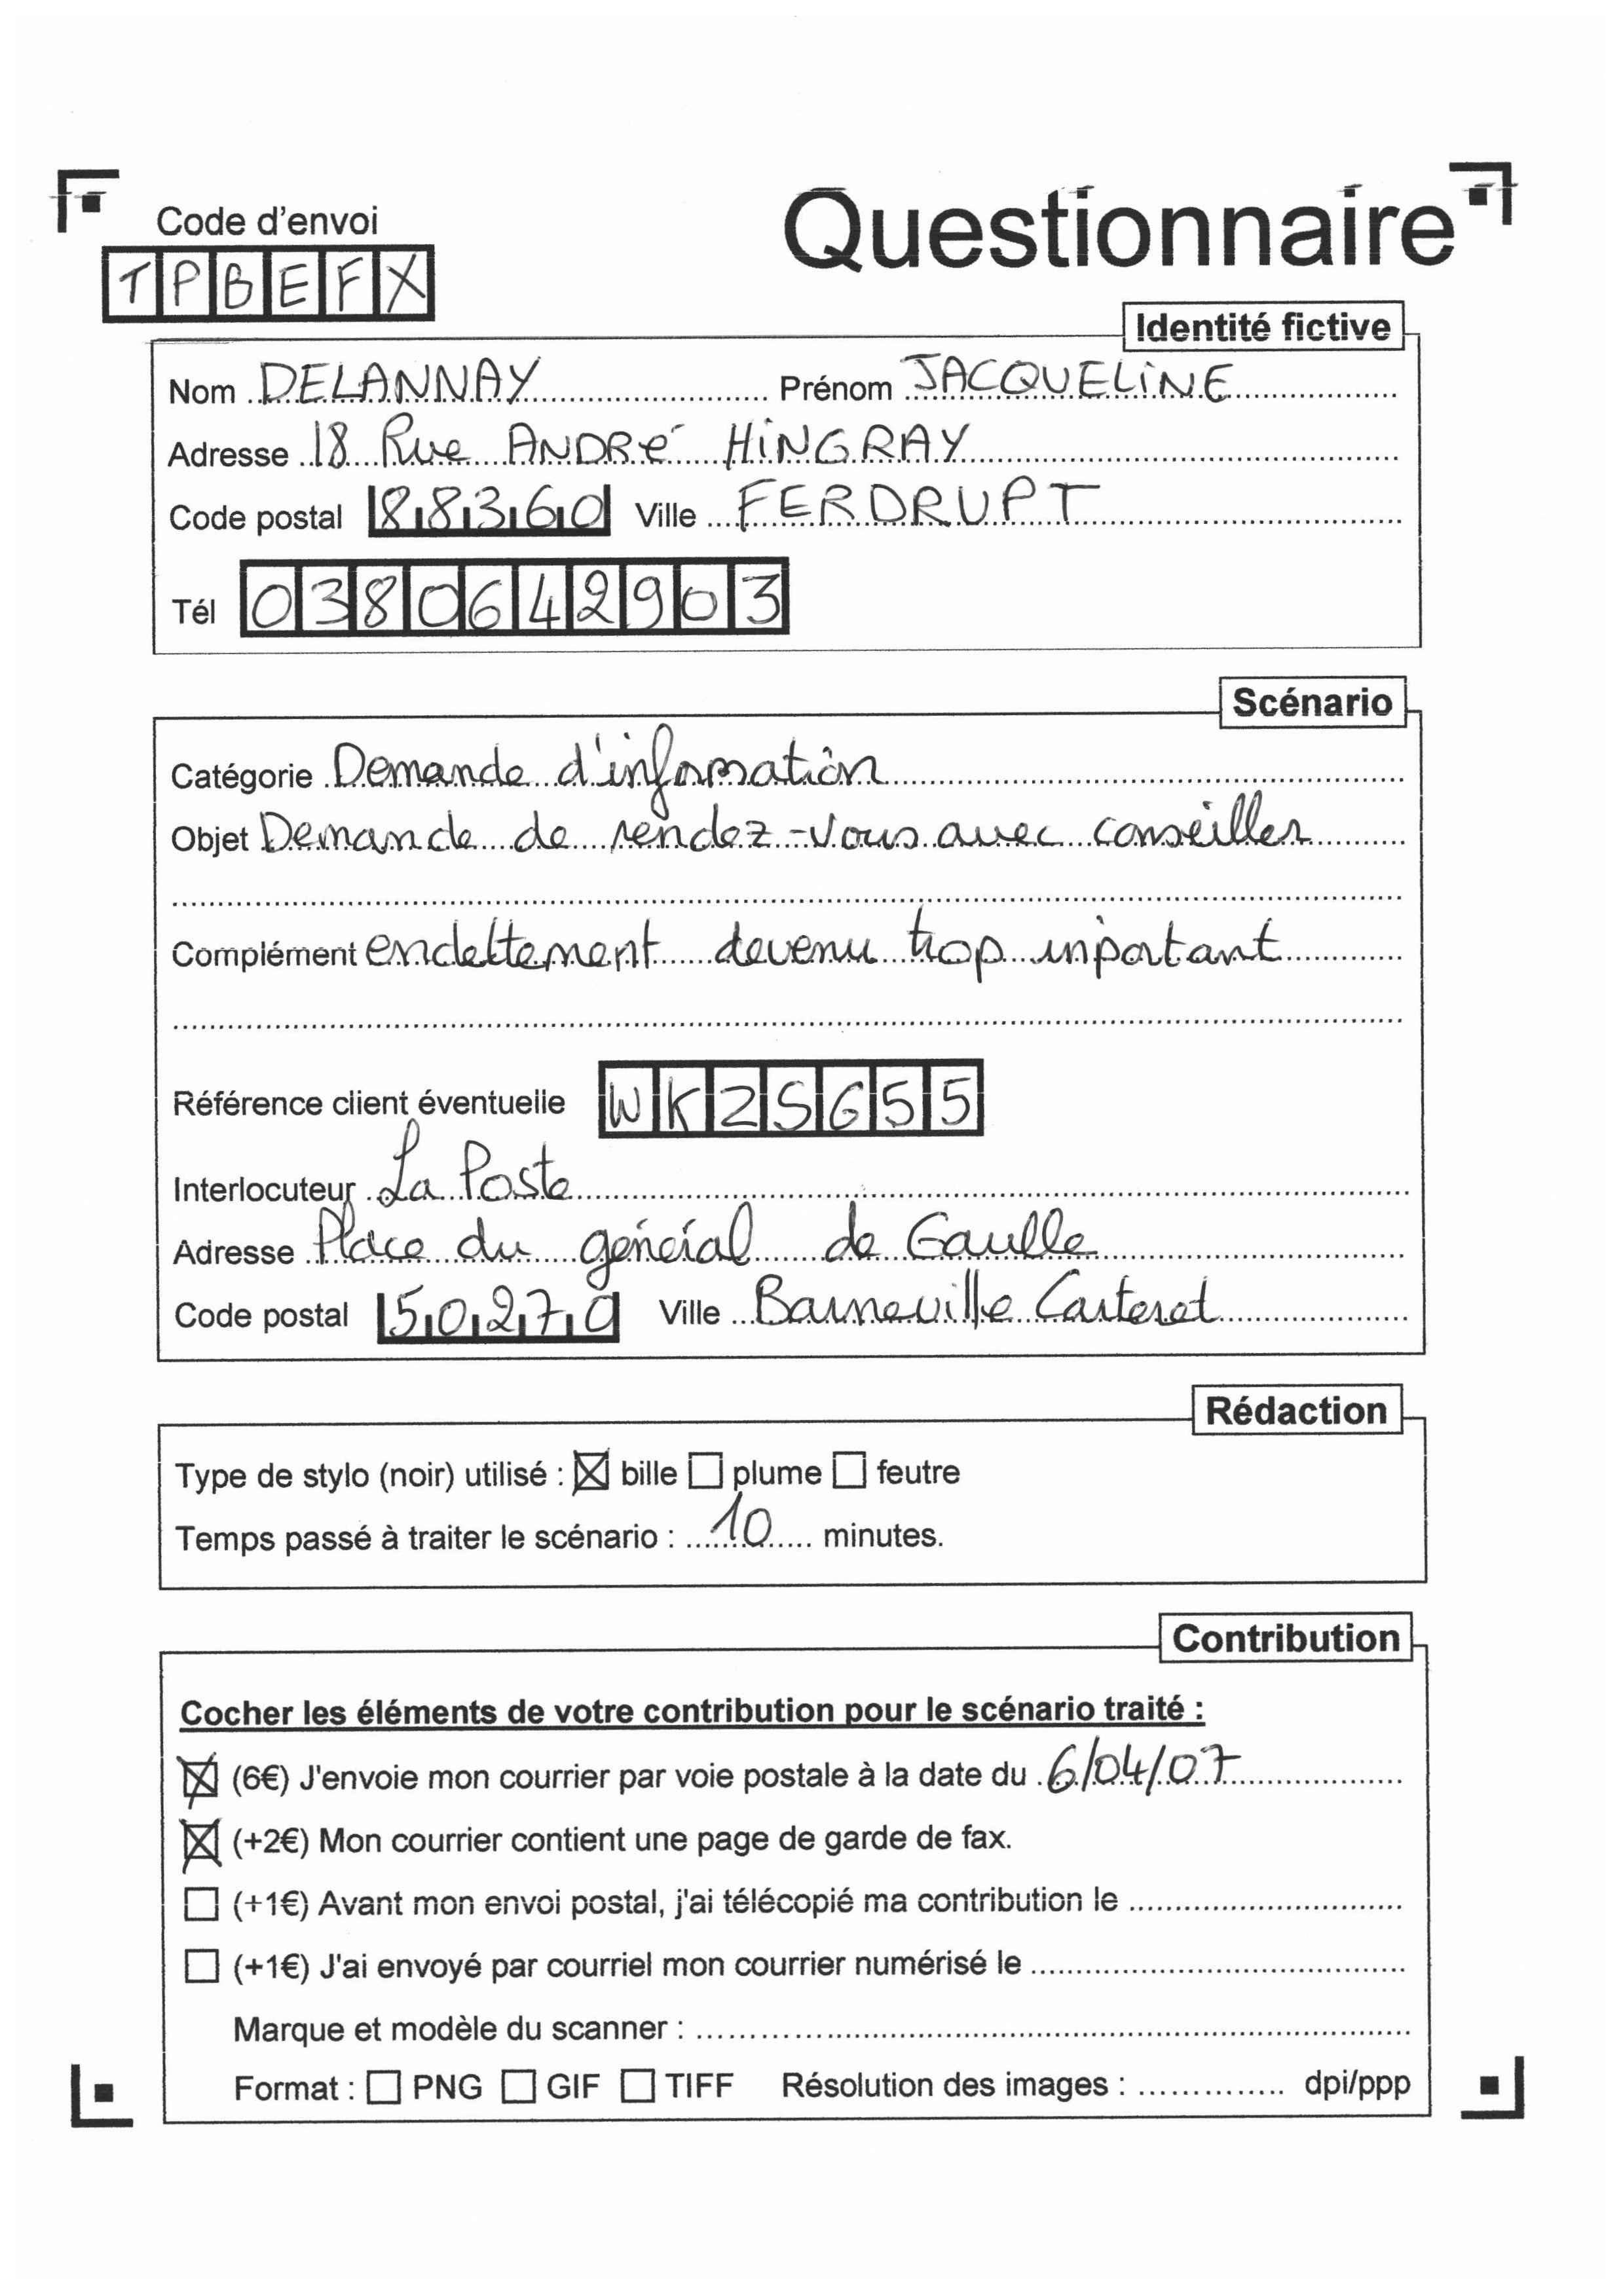 Questionnaire
Code d'envoi
TPBEFX
Identité fictive
Nom DELANNAY Prénom JACQUELINE
Adresse 18 Rue ANDRé HINGRAY
Code postal 88360 Ville FERDRUPT
Tél 0380642903
Scénario
Catégorie Demande d'information
Objet Demande de rendez-vous avec conseiller
Complément endettement devenu trop inportant
Référence client éventuelle WK2SG55
Interlocuteur La Poste
Adresse Place du général de Gaulle
Code postal 50270 Ville Barneville Carteret
Rédaction
Type de stylo (noir) utilisé : ☒ bille ☐ plume ☐ feutre
Temps passé à traiter le scénario : 10 minutes.
Contribution
Cocher les éléments de votre contribution pour le scénario traité :
☒ (6€) J'envoie mon courrier par voie postale à la date du 6/04/07
☒ (+2€) Mon courrier contient une page de garde de fax.
☐ (+1€) Avant mon envoi postal, j'ai télécopié ma contribution le
☐ (+1€) J'ai envoyé par courriel mon courrier numérisé le
Marque et modèle du scanner :
Format : ☐ PNG ☐ GIF ☐ TIFF Résolution des images : dpi/ppp